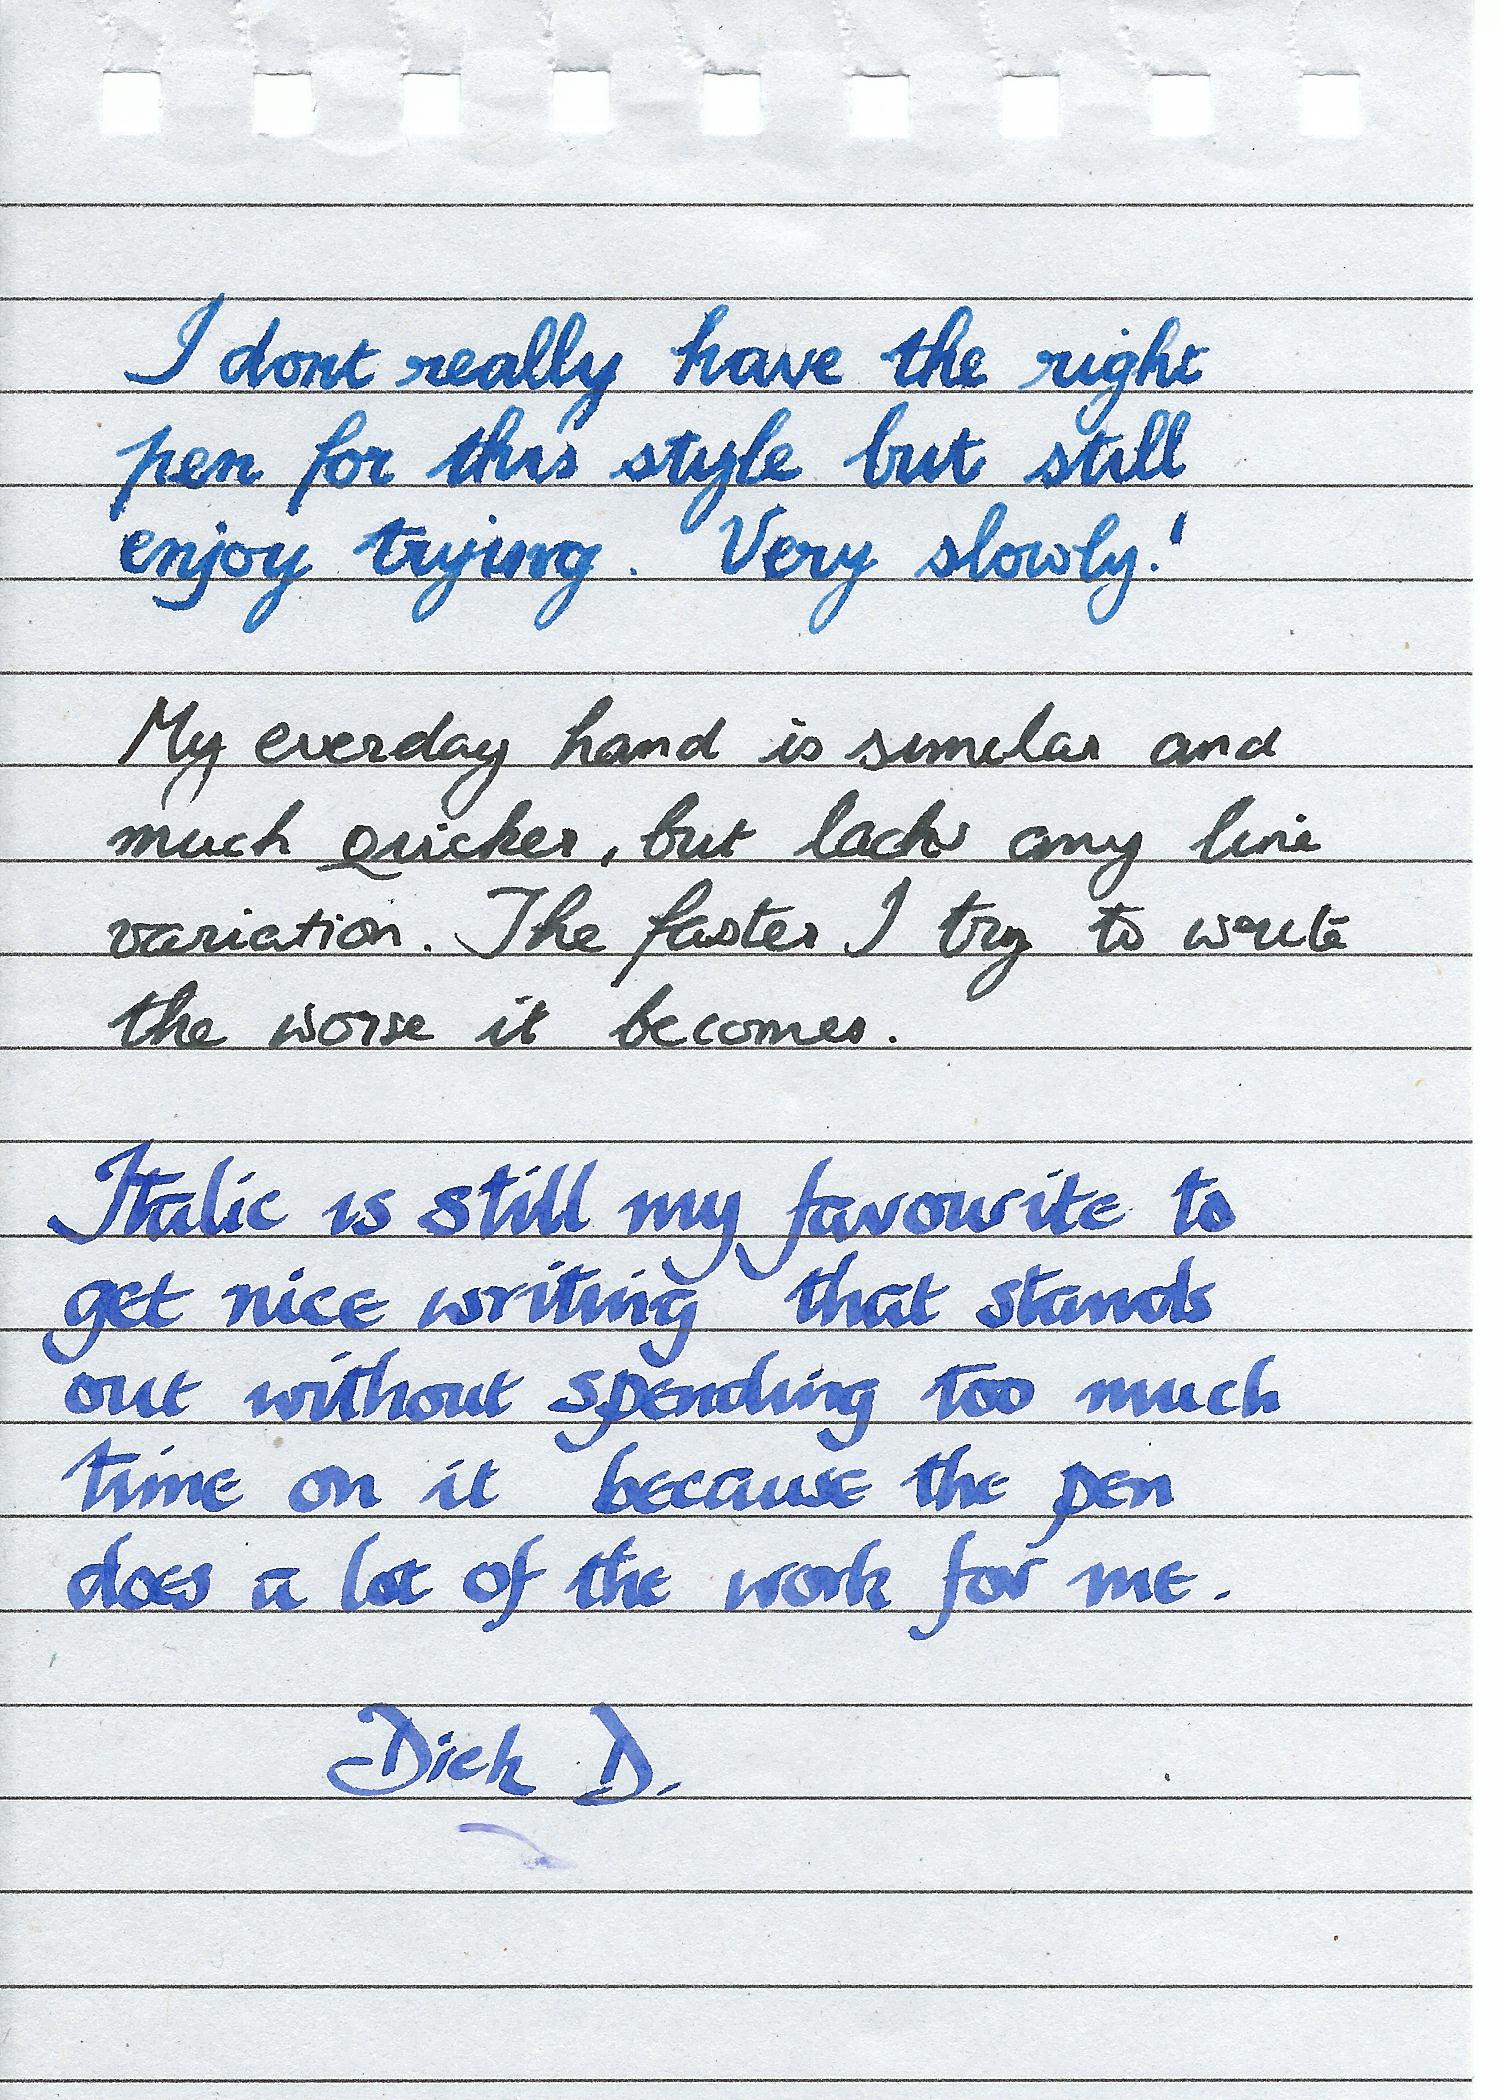 I dont really have the right
pen for this style but still
enjoy trying. Very slowly!
My everday hand is similar and
much quicker, but lacks any line
variation. The faster I try to write
the worse it becomes.
Italic is still my favourite to
get nice writing that stands
out without spending too much
time on it because the pen
does a lot of the work for me.
Dick D.